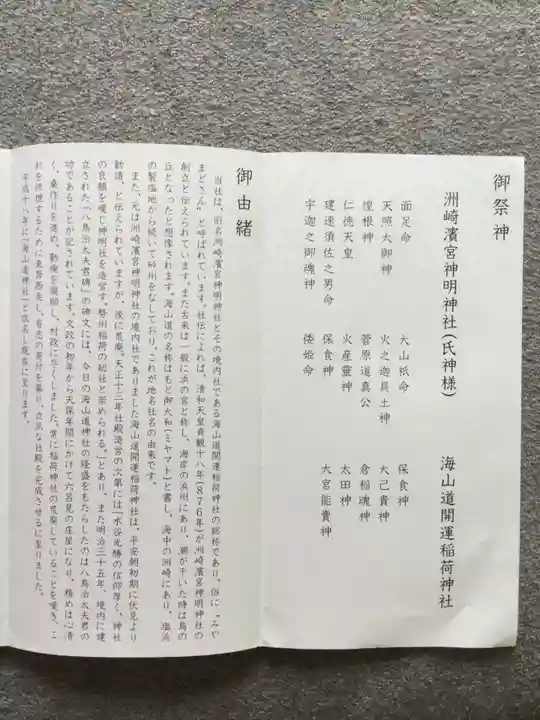 御祭神
洲崎濱宮神明神社(氏神様)　海山道開運稲荷神社
面足命　大山祇命　保食神
天照大御神　火之迦具土神　大己貴神
惶根神　菅原道真公　倉稲魂神
仁徳天皇　火産靈神　太田神
建速須佐之男命　保食神　大宮能賣神
宇迦之御魂神　倭姫命
御由緒
当社は、旧名洲崎濱宮神明神社とその境内社である海山道開運稲荷神社の総称であり、俗に"みや
まどさん"と呼ばれています。社伝によれば、清和天皇貞観十八年(876年)が洲崎濱宮神明神社の
創立と伝えられています。また古来は一般に浜の宮と称し、海岸の浜州にあり、潮が干いた時は島の
丘となったと想像されます。海山道の名称はもと御大和(ミヤマト)と書し、海中の洲崎にあり、塩浜
の製塩地から続いて砂州をなしており、これが地名社名の由来です。
また、元は洲崎濱宮神明神社の境内社でありました海山道開運稲荷神社は、平安朝初期に伏見より
勧請、と伝えられていますが、後に荒廃。天正十三年社殿造営の次第には「水谷光勝の信仰厚く、神社
の衰頽を嘆じ神明社を造営す。勢州稲荷の総社と崇める。」とあり、また明治三十五年、境内に建
立された「八鳥治太夫君碑」の碑文には、今日の海山道神社の隆盛をもたらしたのは八鳥治太夫君の
功であることが記されています。文政の初年から天保年間にかけて六呂見の庄屋になり、務めは心清
く、桑作りを進め、勤倹を奨励し、村政に尽くしました。常に稲荷神社の荒廃していることを嘆き、こ
れを修復するために東奔西走し、有志の寄付を募り、立派な社殿を完成させるに至りました。
平成十八年に「海山道神社」と改名し現在に至ります。